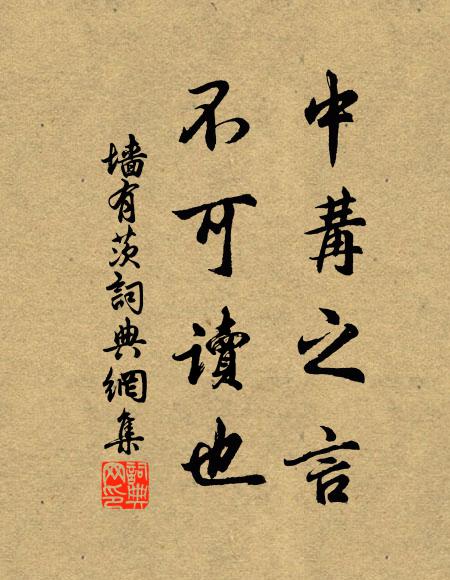 中冓之言
不可讀也
墙有茨詞典網集
詞典網印